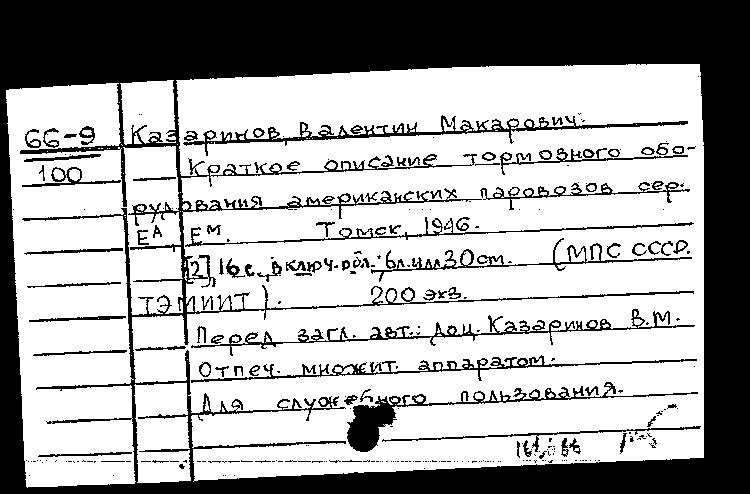 66-9 Казаринов, Валентин Макарович.
100 Краткое описание тормозного обо-
рудования американских паровозов сер.
Еᴬ, Еᴹ. Томск, 1946.
[2], 16 с., включ. обл.; 6 л. ил. 30 см. (МПС СССР.
ТЭМИИТ). 200 экз.
Перед загл. авт.: Доц. Казаринов В.М.
Отпеч. множит. аппаратом.
Для служебного пользования.